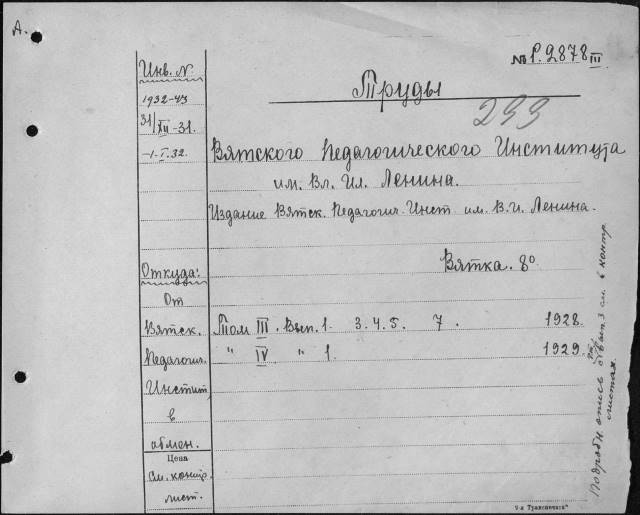 А.
№ Р.2878 III
Инв. №
Труды
1932-43
299
31/XII-31.
-1.I.32.
Вятского Педагогического Института
им. Вл. Ил. Ленина.
Издание Вятск. Педагогич. Инст. им. В.И. Ленина.
Вятка. 8°
Откуда:
От
Вятск.
Педагогич.
Инстит.
в
обмен.
Цена
см. контр.
лист.
Том III. Вып. 1. 3. 4. 5. 7. 1928.
" IV " 1. 1929.
Подробн. опись см. в контр.
листах.